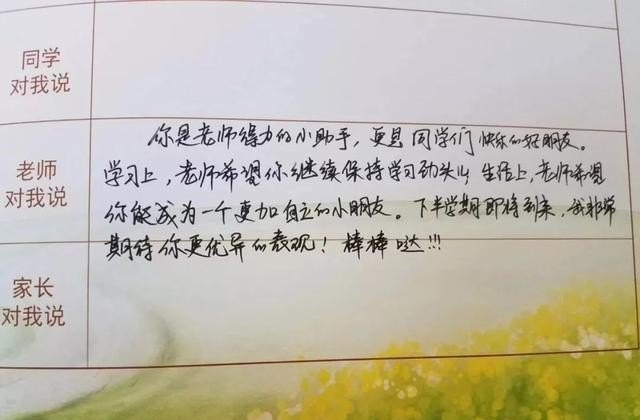 同学
对我说
你是老师得力的小助手，更是同学们快乐的好朋友。
老师
对我说
学习上，老师希望你继续保持学习劲头！生活上，老师希望
你能成为一个更加自立的小朋友。下半学期即将到来，我非常
期待你更优异的表现！棒棒哒!!!
家长
对我说